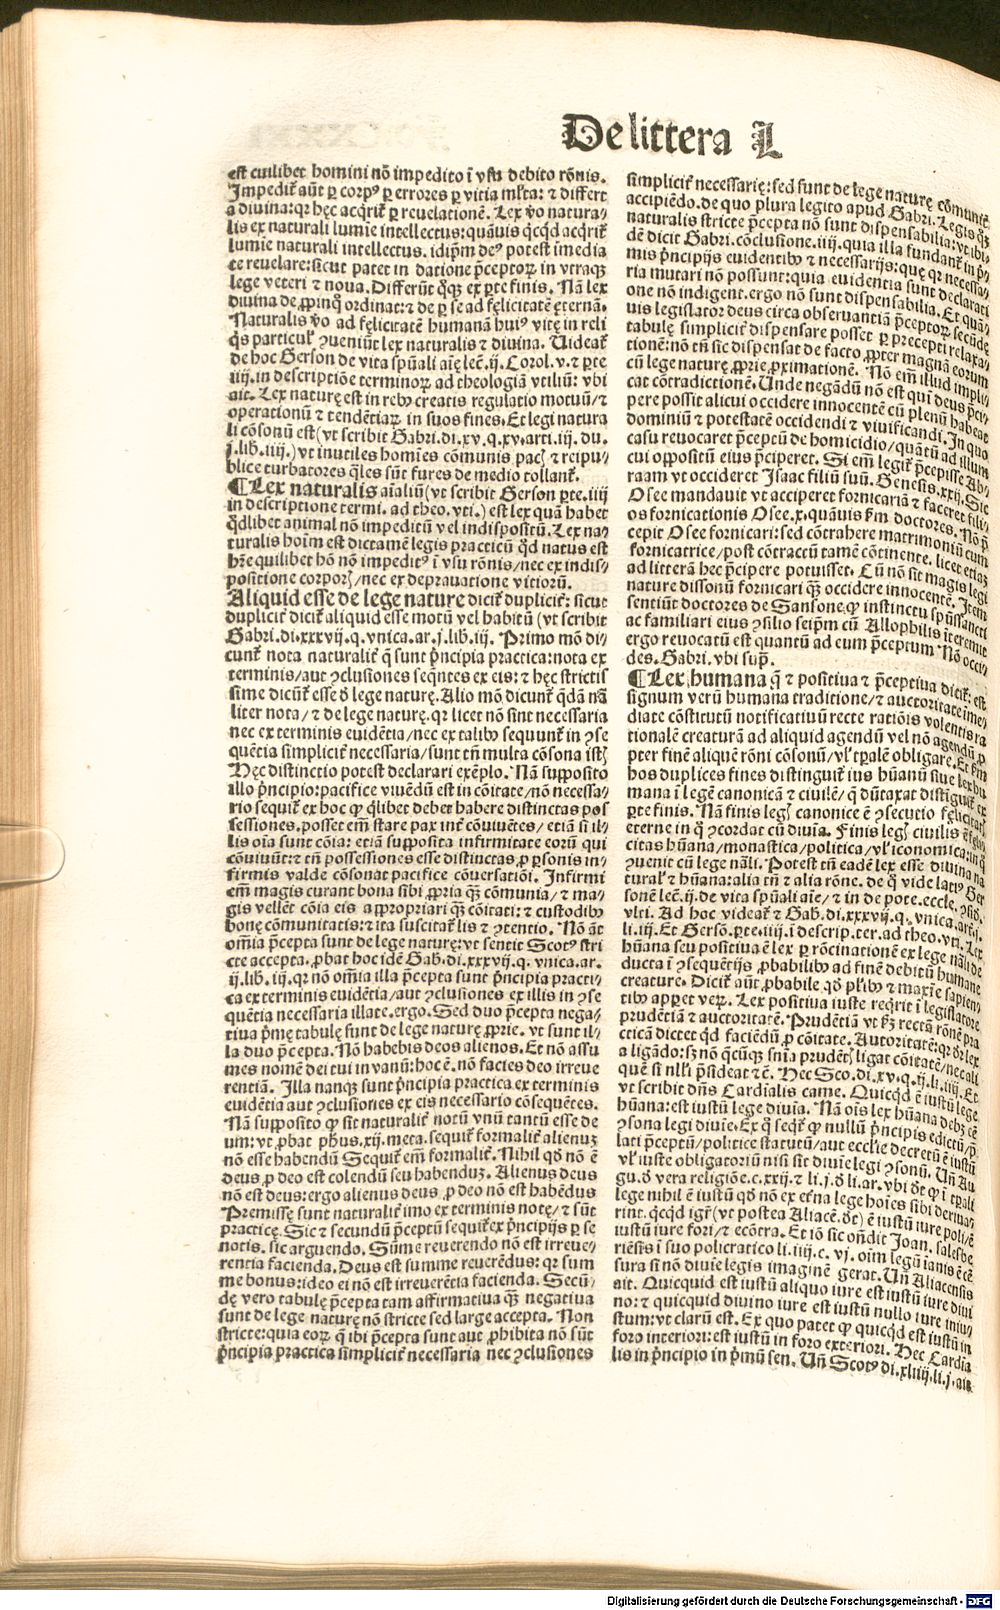 De littera L
est cuilibet homini nō impedito ī vsu debito rōnis.
Impediť aūt ꝑ corpꝰ ꝑ errores ꝑ vitia mľta: ⁊ differt
a divina: qꝛ hęc acq̇riť ꝑ reuelationē. Lex ṽo natura⸗
lis ex naturali lumīe intellectus: quāuis q̇cq̄d acq̇riť
lumīe naturali intellectus. idīpm̄ deꝰ potest īmedia
te reuelare: sicut patet in datione p̄ceptoꝝ in vtraqꝫ
lege veteri ⁊ noua. Differūt q̊qꝫ ex ꝑte finis. Nā lex
diuina de ꝓpinq̊ ordinat: ⁊ de ꝑ se ad fęlicitatē ęternā.
Naturalis ṽo ad fęlicitatē humanā huiꝰ vitę in reli
q̇s particuľ ꝯueniūt lex naturalis ⁊ diuina. Videať
de hoc Gerson de vita spūali aīę lec̄. ij. Corol. v. ⁊ ꝑte
iiij. in descriptiōe terminoꝝ ad theologiā vtiliū: vbi
ait. Lex naturę est in rebꝰ creatis regulatio motuū/ ⁊
operationū ⁊ tendētiaꝝ in suos fines. Et legi natura
li cōsonū est (vt scribit Gabri. di. xv. q. xv. arti. iij. du.
j. lib. iiij.) vt inutiles homīes cōmunis pacꝭ ⁊ reipu⸗
blice turbatores q̄les sūt fures de medio tollanť.
¶ Lex naturalis aīaliū (vt scribit Gerson ꝑte. iiij
in descriptione termi. ad theo. vti.) est lex quā habet
q̊dlibet animal nō impeditū vel indispositū. Lex na⸗
turalis hoīm est dictamē legis practicū q̊d natus est
hr̄e quilibet hō nō impeditꝰ ī vsu rōnis/ nec ex indis⸗
positione corporꝭ/ nec ex deprauatione vitiorū.
Aliquid esse de lege nature diciť dupliciť: sicut
dupliciť diciť aliquid esse motū vel habitū (vt scribit
Gabri. di. xxxvij. q. vnica. ar. j. lib. iij. Primo mō di⸗
cunť nota naturaliť q̄ sunt p̄ncipia practica: nota ex
terminis/ aut ꝯclusiones seqn̄tes ex eis: ⁊ hęc strictis
sime dicūť esse ď lege naturę. Alio mō dicunť q̄dā nā
liter nota/ ⁊ de lege naturę. qꝛ licet nō sint necessaria
nec ex terminis euidētia/ nec ex talibꝰ sequunť in ꝯse
quētia simpliciť necessaria/ sunt tn̄ multa cōsona istꝭ
Hęc distinctio potest declarari exēplo. Nā supposito
illo p̄ncipio: pacifice viuēdū est in cōitate/ nō necessa⸗
rio sequiť ex hoc ꝙ q̇libet debet habere distinctas pos
sessiones. posset em̄ stare pax inť cōuiuētes/ etiā si il⸗
lis oīa sunt cōia: etiā supposita infirmitate eorū qui
cōuiuūt: ⁊ tn̄ possessiones esse distinctas ꝓ ꝑsonis in⸗
firmis valde cōsonat pacifice cōuersatiōi. Infirmi
em̄ magis curant bona sibi ꝓpria qꝫ̄ cōmunia/ ⁊ ma⸗
gis vellēt cōia eis appropriari qꝫ̄ cōitati: ⁊ custodibꝰ
bonę cōmunitatis: ⁊ ita suscitať lis ⁊ ꝯtentio. Nō aūt
om̄ia p̄cepta sunt de lege naturę: vt sentit Scotꝰ stri
cte accepta. ꝓbat hoc idē Gab. di. xxxvij. q. vnica. ar.
ij. lib. iij. qꝛ nō om̄ia illa p̄cepta sunt p̄ncipia practi⸗
ca ex terminis euidētia/ aut ꝯclusiones ex illis in ꝯse
quētia necessaria illate. ergo. Sed duo p̄cepta nega⸗
tiua p̄mę tabulę sunt de lege naturę ꝓprie. vt sunt il⸗
la duo p̄cepta. Nō habebis deos alienos. Et nō assu
mes nomē dei tui in vanū: hoc ē. nō facies deo irreue
rentiā. Illa nanqꝫ sunt p̄ncipia practica ex terminis
euidētia aut ꝯclusiones ex eis necessario cōsequētes.
Nā supposito ꝙ sit naturaliť notū vnū tantū esse de
um: vt ꝓbat ph̄us. xij. meta. sequiť formaliť alienuꝫ
nō esse habendū Sequiť em̄ formaliť. Nihil qď nō ē
deus ꝓ deo est colendū seu habenduꝫ. Alienus deus
nō est deus: ergo alienus deus ꝓ deo nō est habēdus
Premissę sunt naturaliť imo ex terminis notę/ ⁊ sūt
practicę. Sic ⁊ secundū p̄ceptū sequiť ex p̄ncipijs ꝑ se
notis. sic arguendo. Sūme reuerendo nō est irreue⸗
rentia facienda. Deus est summe reuerēdus: qꝛ sum
me bonus: ideo ei nō est irreuerētia facienda. Secū⸗
dę vero tabulę p̄cepta tam affirmatiua qꝫ̄ negatiua
sunt de lege naturę nō stricte sed large accepta. Non
stricte: quia eoꝝ q̄ ibi p̄cepta sunt aut ꝓhibita nō sūt
p̄ncipia practica simpliciť necessaria nec ꝯclusiones
simpliciť necessarię: sed sunt de lege naturę cōmuniť
accipiēdo. de quo plura legito apud Gabri. Legis q̊ꝫ
naturalis stricte p̄cepta nō sunt dispensabilia: vt ibi⸗
dē dicit Gabri. cōclusione. iiij. quia illa fundanť in p̄⸗
mis p̄ncipijs euidentibꝰ ⁊ necessarijs: quę qꝛ necessa⸗
ria mutari nō possunt: quia euidentia sunt declarati
one nō indigent. ergo nō sunt dispensabilia. Et quā⸗
uis legislator deus circa obseruantiā p̄ceptoꝝ secūdę
tabulę simpliciť dispensare posset ꝑ precepti relaxa⸗
tionē: nō tn̄ sic dispensat de facto ꝓpter magnā eorum
cū lege naturę ꝓprie ꝓximationē. Nō em̄ illud impli⸗
cat contradictionē. Unde negādū nō est qui deus p̄ci⸗
pere possit alicui occidere innocentē cū plenū habeat
dominiū ⁊ potestatē occidendi ⁊ viuificandi. In quo
casu reuocaret p̄ceptū de homicidio/ quātū ad illum
cui oppositū eius p̄ciperet. Si em̄ legiť p̄cepisse Ab⸗
raam vt occideret Isaac filiū suū. Genesis. xxij. Sic
Osee mandauit vt acciperet fornicariā ⁊ faceret fili⸗
os fornicationis Osee. x. quāuis ẜm doctores. Nō p̄
cepit Osee fornicari: sed cōtrahere matrimoniū cum
fornicatrice/ post cōtractū tamē cōtinente. licet etiaꝫ
ad litterā hec p̄cipere potuisset. Cū nō sit magis legi
nature dissonū fornicari qꝫ̄ occidere innocentē. Item
sentiūt doctores de Sansone ꝙ instinctu spūssancti
ac familiari eius ꝯsilio seipm̄ cū Allophilis īteremit
ergo reuocatū est quantū ad eum p̄ceptum Nō occi⸗
des. Gabri. vbi sup̄.
¶ Lex humana q̄ ⁊ positiua ⁊ p̄ceptiua diciť: est
signum verū humana traditione/ ⁊ auctoritate ime⸗
diate cōstitutū notificatiuū recte ratiōis volentis ra
tionalē creaturā ad aliquid agendū vel nō agendū ꝓ
pter finē aliquē rōni cōsonū/ vľ tꝑalē obligare. Et ẜm
hos duplices fines distinguiť ius hūanū siue lex hu
mana ī legē canonicā ⁊ ciuilē/ q̄ dūtaxat distīguiť ex
ꝑte finis. Nā finis legꝭ canonice ē ꝯsecutio fęlicitatꝭ
eterne in q̄ ꝯcordat cū diuīa. Finis legꝭ ciuilis ē fęli⸗
citas hūana/ monastica/ politica/ vľ iconomica: in q̄
ꝯuenit cū lege nāli. Potest tn̄ eadē lex esse diuina na
turať ⁊ hūana: alia tn̄ ⁊ alia rōne. de q̊ vide latiꝰ Ger
sonē lec̄. ij. de vita spūali aīe/ ⁊ in de pote. eccle. ꝯsid.
vlti. Ad hoc videať ⁊ Gab. di. xxxvij. q. vnica. arti. j.
li. iij. Et Gersō. ꝑte. iiij. ī descrip. ter. ad theo. vti. Lex
hūana seu positiua ē lex ꝑ rōcinationē ex lege nāli de
ducta ī ꝯsequētijs ꝓbabilibꝰ ad finē debitū humane
creature. Diciť aūt ꝓbabile qď pl'ibꝰ ⁊ maxīe sapien⸗
tibꝰ apparet veꝝ. Lex positiua iuste req̇rit ī legislatore
prudētiā ⁊ auctoritatē. Prudētiā vt ẜꝫ rectā rōnē pra
cticā dictet q̇d faciēdū ꝓ cōitate. Autoritatē: qꝛ ďr lex
a ligādo: sꝫ nō q̄cūqꝫ sn̄ia prudētꝭ ligat cōitatē/ nec ali
quē si nľli p̄sideat ⁊c̄. Hec Sco. di. xv. q. ij. li. iiij. Et
vt scribit dn̄s Cardīalis came. Quicq̄d ē iustū lege
hūana: est iustū lege diuīa. Nā oīs lex hūana debꝫ eē
ꝯsona legi diuīe. Ex q̊ seq̇ť ꝙ nullū p̄ncipis edictū/ p̄
lati p̄ceptū/ politice statutū/ aut ecclīe decretū ē iustū
vľ iuste obligatoriū nisi sit diuīe legi ꝯsonū. Un̄ Au
gu. ď vera religiōe. c. xxij. ⁊ li. j. ď li. ar. vbi ďt ꝙ ī tꝑali
lege nihil ē iustū qď nō ex et̄na lege hoīes sibi deriua⸗
rint. q̇cq̇d igiť (vt postea Aliacē. ďt) ē iustū iure poli/ ē
iustū iure fori/ ⁊ ecōtra. Et iō sic on̄dit Joan. salesbe
riēsis ī suo policratico li. iiij. c. vj. oīm legū īanis ē cē
sura si nō diuīe legis imaginē gerat. Un̄ Aliacensis
ait. Quicquid est iustū aliquo iure est iustū iure diui
no: ⁊ quicquid diuino iure est iustū nullo iure iniu⸗
stum: vt clarū est. Ex quo patet ꝙ quicq̄d est iustū in
foro interiori: est iustū in foro exteriori. Hec Cardia
lis in p̄ncipio in p̄mū sen. Un̄ Scotꝰ di. xliiij. li. j. ait
Digitalisierung gefördert durch die Deutsche Forschungsgemeinschaft - DFG